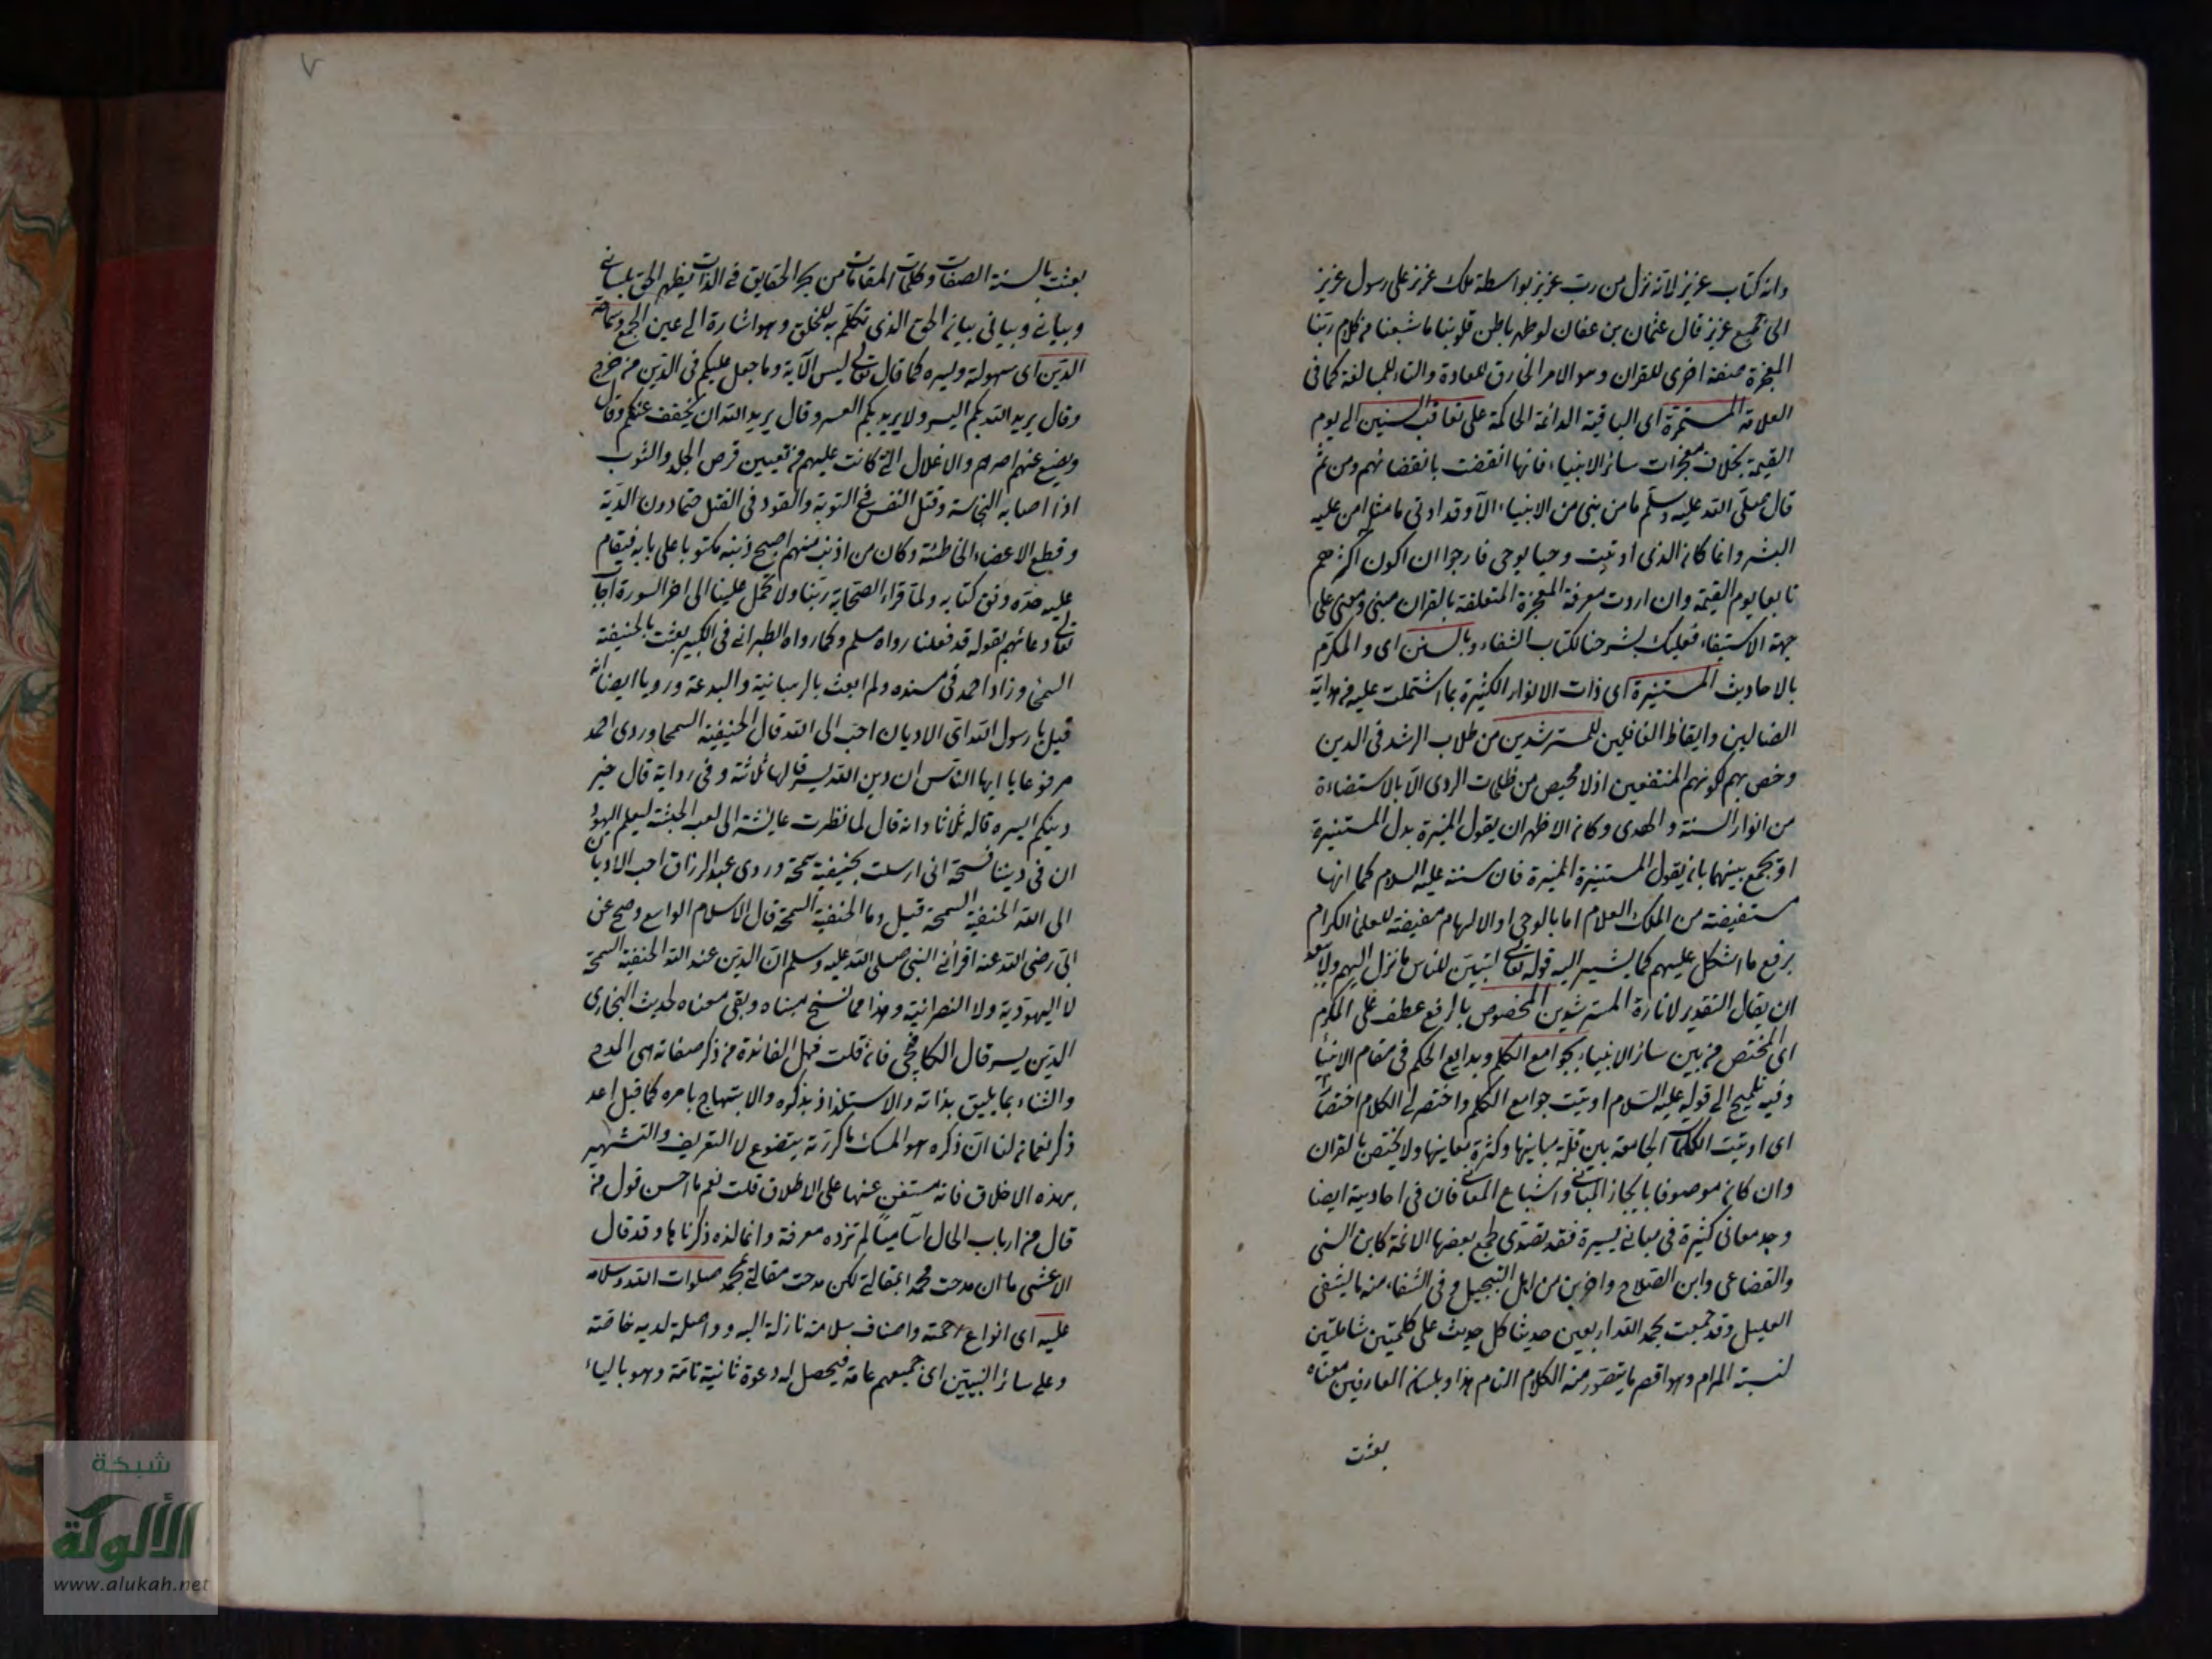 وانه كتاب عزيز لانه نزل من رب عزيز بواسطة ملك عزيز على رسول عزيز
الى جميع عزيز قال عثمان بن عفان لو طهر باطن قلوبنا ما شبعنا من كلام ربنا
المعجزة صفة اخرى للقران وهو الامر الخارق للعادة والتاء للمبالغة كما في
العلامة المستمرة اى الباقية الدائمة الحاكمة على تعاقب السنين الى يوم
القيمة بخلاف معجزات سائر الانبياء فانها انقضت بانقضائهم ومن ثم
قال صلى الله عليه وسلم ما من نبى من الانبياء الا وقد اوتى ما مثله امن عليه
البشر وانما كان الذى اوتيت وحيا يوحى فارجوا ان اكون اكثرهم
تابعا يوم القيمة وان اردت معرفة المعجزة المتعلقة بالقران مبنى ومعنى على
جهة الاستيفاء فعليك بشرحنا لكتاب الشفاء وبالسنن اى والمكرم
بالاحاديث المستنيرة اى ذات الانوار الكثيرة بما اشتملت عليه من هداية
الضالين وايقاظ الغافلين للمسترشدين من طلاب الرشد فى الدين
وخص بهم لكونهم المنتفعين اذ لا محيص من ظلمات الردى الا بالاستضاءة
من انوار السنة والهدى وكان الاظهر ان يقول المنيرة بدل المستنيرة
او يجمع بينهما بان يقول المستنيرة المنيرة فان سنته عليه السلام كما انها
مستفيضة من الملك العلام اما بالوحى او الالهام مفيضة للعلماء الكرام
برفع ما اشكل عليهم كما يشير اليه قوله تعالى لتبين للناس ما نزل اليهم ولا يبعد
ان يقال التقدير لانارة المسترشدين المخصوص بالرفع عطف على المكرم
اى المختص من بين سائر الانبياء بجوامع الكلم وبدايع الحكم فى مقام الانباء
وفيه تلميح الى قوله عليه السلام اوتيت جوامع الكلم واختصر لى الكلام اختصارا
اى اوتيت الكلمات الجامعة بين قلة مبانيها وكثرة معانيها ولا يختص بالقران
وان كان موصوفا بايجاز المبانى واشباع المعانى فان فى احاديثه ايضا
وجد معانى كثيرة فى مبانى يسيرة فقد تصدى لجمع بعضها الائمة كابن السنى
والقضاعى وابن الصلاح واخرين من اهل التبجيل وفى الشفاء منه ما يشفى
العليل وقد جمعت بحمد الله اربعين حديثا كل حديث على كلمتين شاملتين
لنسبة المرام وهو اقصر ما يتصور منه الكلام التام هذا وبلسان العارفين معناه
بعثت
٧
بعثت بالسنة الصفات وكلمات المقامات من بحر الحقايق فى الذات يظهر الحق بلسانى
وبيانى وبيانى بيان الحق الذى تكلم به للخلق وهو اشارة الى عين الجمع وسماحة
الدين اى سهولته ويسره كما قال تعالى ليس الآية وما جعل عليكم فى الدين من حرج
وقال يريد الله بكم اليسر ولا يريد بكم العسر وقال يريد الله ان يخفف عنكم وقال
ويضع عنهم اصرهم والاغلال التى كانت عليهم من تعيين قرض الجلد والثوب
اذا اصابه النجاسة وقتل النفس فى التوبة والقود فى القتل حتما دون الدية
وقطع الاعضاء الخاطئة وكان من اذنب منهم اصبح ذنبه مكتوبا على بابه فيقام
عليه حده وفق كتابه ولما قراء الصحابة ربنا ولا تحمل علينا الى اخر السورة اجاب
تعالى دعائهم بقوله قد فعلنا رواه مسلم وكما رواه الطبرانى فى الكبير بعثت بالحنيفية
السمحى وزاد احمد فى مسنده ولم ابعث بالرهبانية والبدعة ورويا ايضا انه
قيل يا رسول الله اى الاديان احب الى الله قال الحنيفية السمحا وروى احمد
مرفوعا يا ايها الناس ان دين الله يسر قالها ثلاثة وفى رواية قال خير
دينكم ايسره قاله ثلاثا وانه قال لما نظرت عايشة الى لعب الحبشة ليعلم اليهود
ان فى ديننا فسحة انى ارسلت بحنيفية سمحة وروى عبد الرزاق احب الاديان
الى الله الحنفية السمحة قيل وما الحنفية السمحة قال الاسلام الواسع وصح عن
ابى رضى الله عنه اقرانى النبى صلى الله عليه وسلم ان الدين عند الله الحنفية السمحة
لا اليهودية ولا النصرانية وهذا مما نسخ مبناه وبقى معناه لحديث البخارى
الدين يسر قال الكافيجى فان قلت فهل الفائدة من ذكر صفاته هى المدح
والثناء بما يليق بذاته والاستلذاذ بذكره والابتهاج بامره كما قيل اعد
ذكر نعمان لنا ان ذكره هو المسك ما كررته يتضوع لا التعريف والتشهير
بهذه الاخلاق فانه مستغن عنها على الاطلاق قلت نعم ما احسن قول من
قال من ارباب الحال اساميا لم تزده معرفة وانما لذه ذكرناها وقد قال
الاعشى ما ان مدحت محمدا بمقالتى لكن مدحت مقالتى بمحمد صلوات الله وسلامه
عليه اى انواع رحمته واصناف سلامته نازلة اليه وواصلة لديه خاصة
وعلى سائر النبيين اى جميعهم عامة فيحصل له دعوة ثانية تامة وهو بالياء
شبكة
الألوكة
www.alukah.net